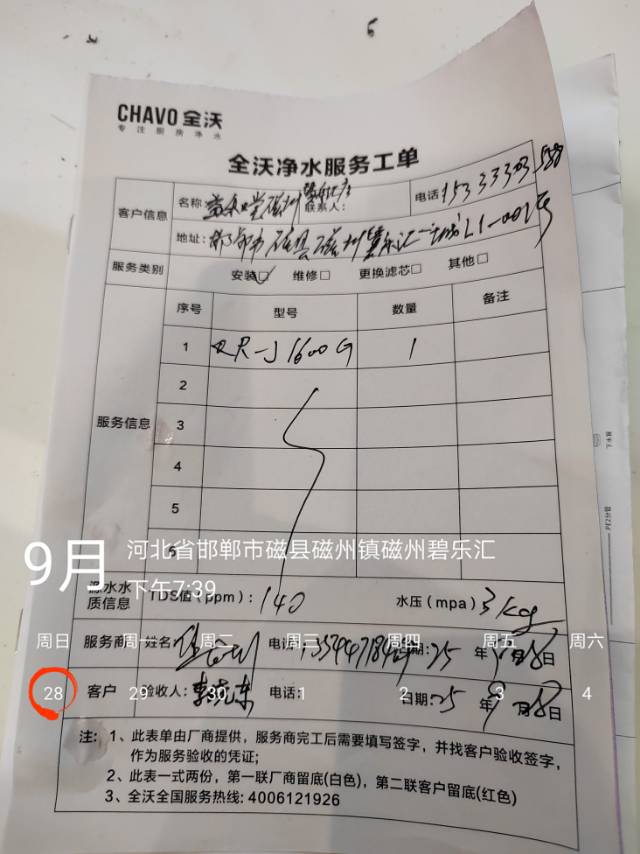 CHAVO 全沃
专注厨房净水
全沃净水服务工单
客户信息
名称: 磁州 联系人: 电话 15333303588
地址: 邯郸市磁县磁州碧乐汇 L1-002号
服务类别 安装☑ 维修□ 更换滤芯□ 其他□
服务信息
序号 型号 数量 备注
1 RR-J1600G 1
2
3
4
5
5
6
9月 河北省邯郸市磁县磁州镇磁州碧乐汇
下午7:39
源水水质信息 TDS值(ppm): 140 水压(mpa) 3kg
周日 周一 周二 周三 周四 周五 周六
服务商 姓名 电话: 日期: 25 年 9月28日
28 29 30 1 2 3 4
客户 验收人: 电话: 日期: 25 年 9月28日
注: 1、此表单由厂商提供，服务商完工后需要填写签字，并找客户验收签字，
作为服务验收的凭证;
2、此表一式两份，第一联厂商留底(白色)，第二联客户留底(红色)
3、全沃全国服务热线: 4006121926